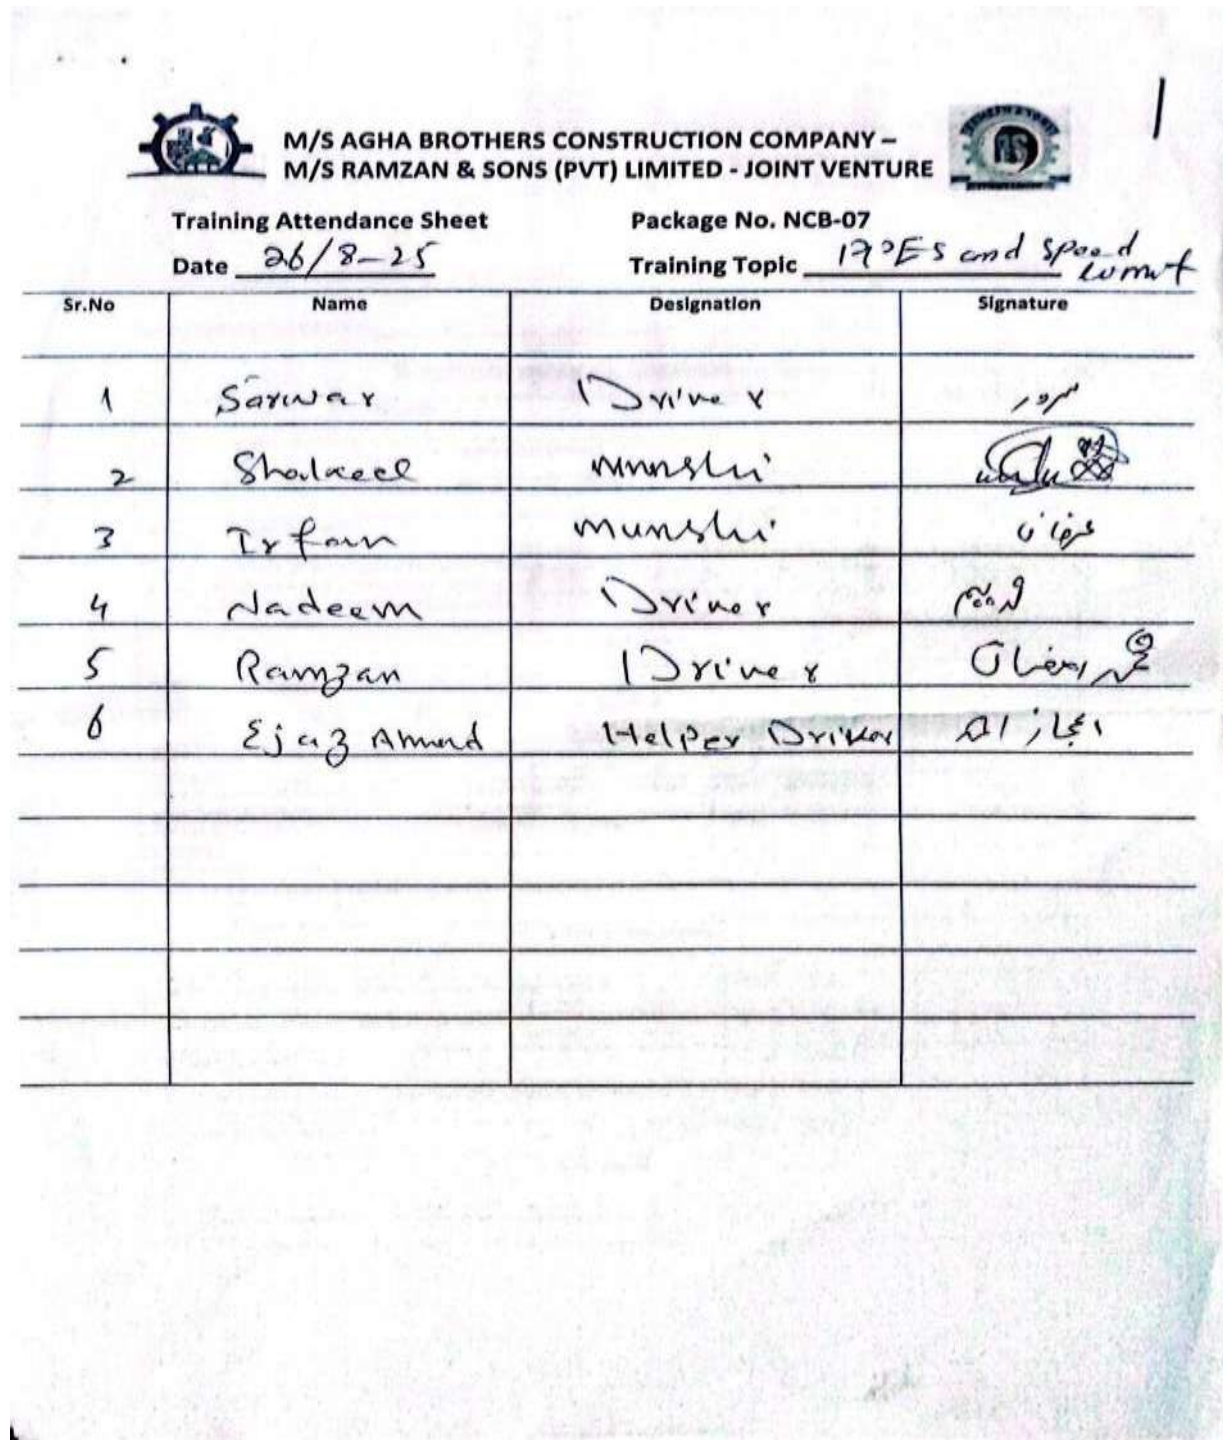 M/S AGHA BROTHERS CONSTRUCTION COMPANY –
M/S RAMZAN & SONS (PVT) LIMITED - JOINT VENTURE
Training Attendance Sheet Package No. NCB-07
Date 26/8-25 Training Topic and Speed
Sr.No Name Designation Signature
1 Sarwar Driver سرور
2 Shakeel munshi
3 Irfan munshi عرفان
4 Nadeem Driver ندیم
5 Ramzan Driver محمد رمضان
6 Ejaz Ahmad Helper Driver اعجاز احمد